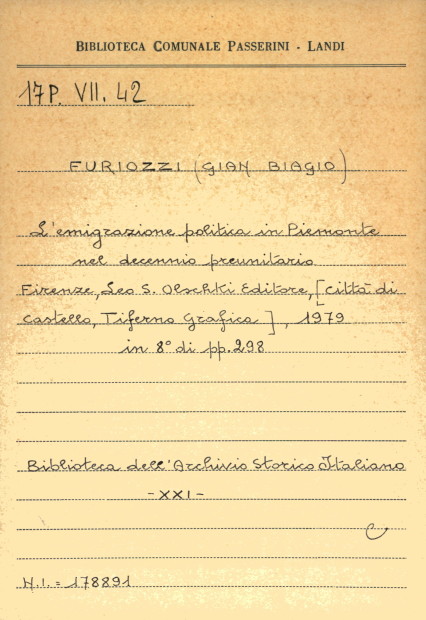 BIBLIOTECA COMUNALE PASSERINI - LANDI
17P. VII. 42
FURIOZZI (GIAN BIAGIO)
L'emigrazione politica in Piemonte
nel decennio preunitario
Firenze, Leo S. Olschki Editore, [Città di
Castello, Tiferno Grafica], 1979
in 8° di pp. 298
Biblioteca dell'Archivio Storico Italiano
-XXI-
C
N.I. = 178891